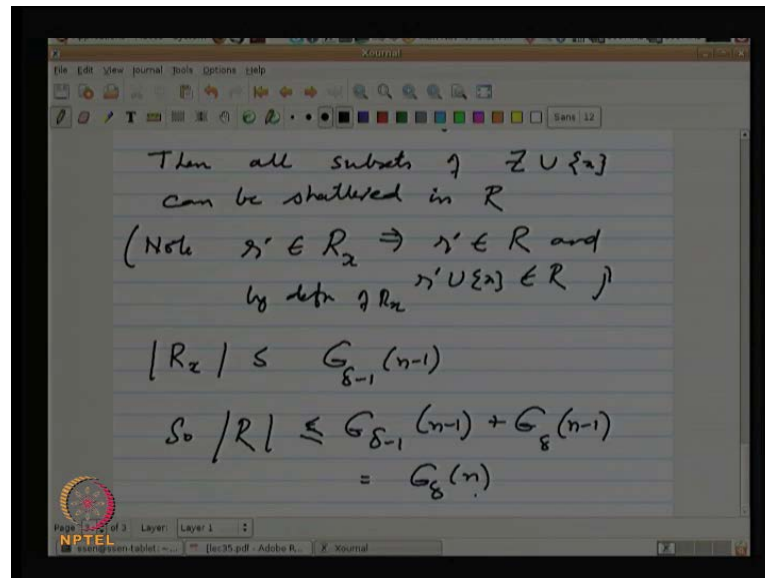 Xournal
File Edit View Journal Tools Options Help
Sans 12
Then all subsets of Z ∪ {x}
can be shattered in R
(Note r' ∈ R_x ⇒ r' ∈ R and
by defn of R_x r' ∪ {x} ∈ R )
|R_x| ≤ G_{δ-1} (n-1)
So |R| ≤ G_{δ-1} (n-1) + G_δ (n-1)
= G_δ (n)
Page 3 of 3 Layer: Layer 1
NPTEL
ssen@ssen-tablet: ~... [lec35.pdf - Adobe R... Xournal